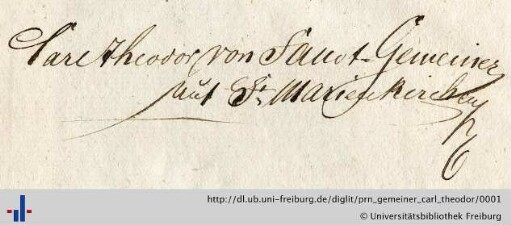 Carl Theodor von Sanct-Gemeiner
auf St. Marienkirchen
http://dl.ub.uni-freiburg.de/diglit/prn_gemeiner_carl_theodor/0001
© Universitätsbibliothek Freiburg